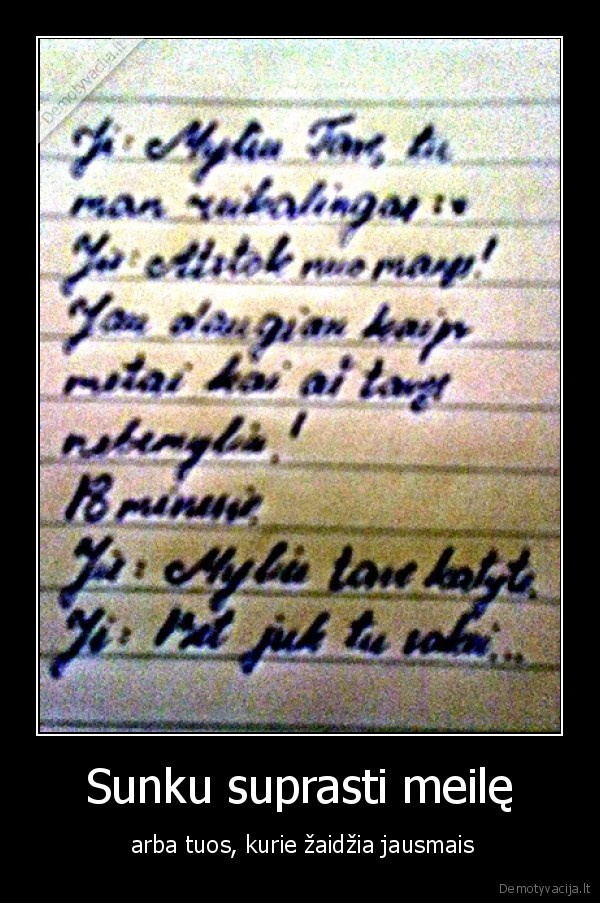 Demotyvacija.lt
Ji: Myliu Tave, tu
man reikalingas :*
Jis: Atstok nuo manęs!
Jau daugiau kaip
metai kai aš tavęs
nebemyliu!
Po mėnesio
Jis: Myliu tave katyte.
Ji: Bet juk tu sakei...
Sunku suprasti meilę
arba tuos, kurie žaidžia jausmais
Demotyvacija.lt